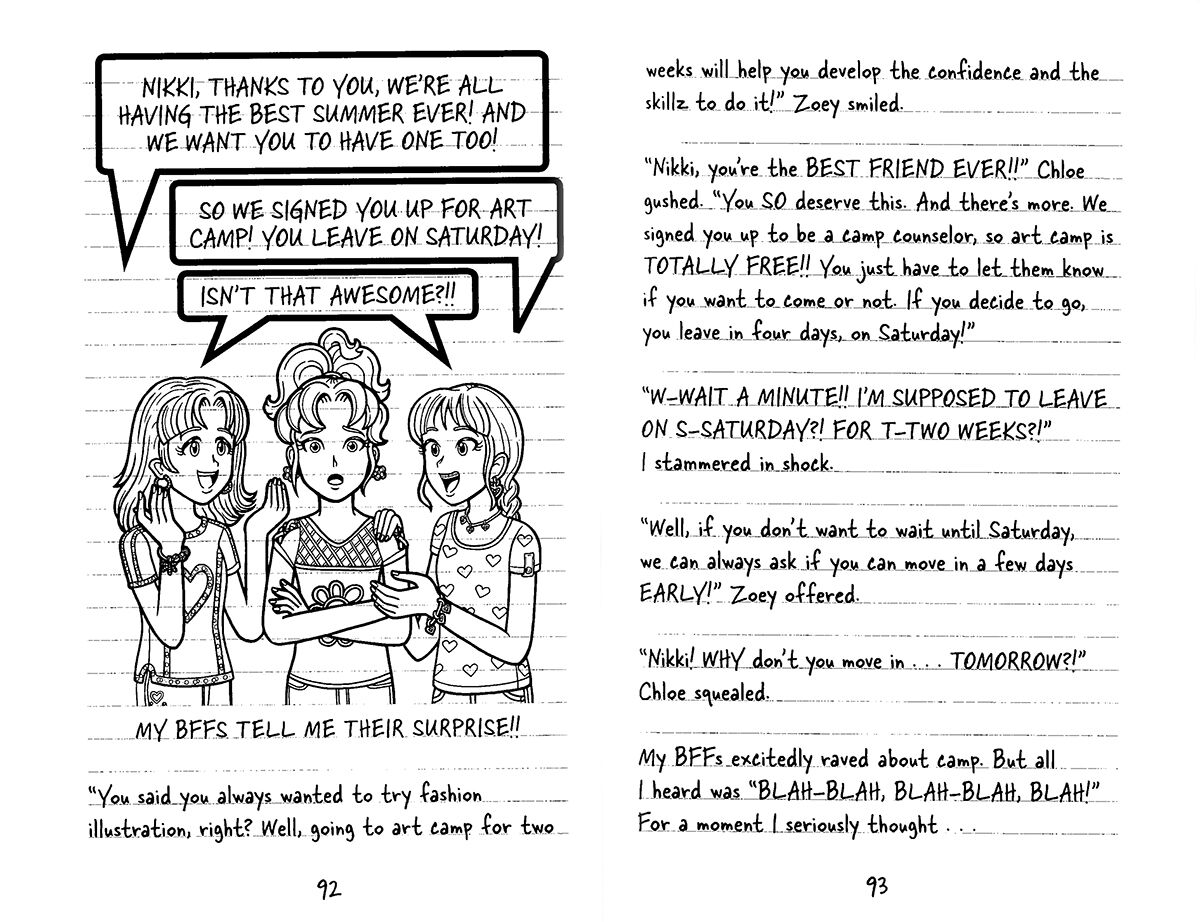 NIKKI, THANKS TO YOU, WE'RE ALL
HAVING THE BEST SUMMER EVER! AND
WE WANT YOU TO HAVE ONE TOO!
SO WE SIGNED YOU UP FOR ART
CAMP! YOU LEAVE ON SATURDAY!
ISN'T THAT AWESOME?!!
MY BFFS TELL ME THEIR SURPRISE!!
“You said you always wanted to try fashion
illustration, right? Well, going to art camp for two
92
weeks will help you develop the confidence and the
skillz to do it!” Zoey smiled.
“Nikki, you're the BEST FRIEND EVER!!” Chloe
gushed. “You SO deserve this. And there's more. We
signed you up to be a camp counselor, so art camp is
TOTALLY FREE!! You just have to let them know
if you want to come or not. If you decide to go,
you leave in four days, on Saturday!”
“W-WAIT A MINUTE!! I'M SUPPOSED TO LEAVE
ON S-SATURDAY?! FOR T-TWO WEEKS?!”
I stammered in shock.
“Well, if you don't want to wait until Saturday,
we can always ask if you can move in a few days
EARLY!” Zoey offered.
“Nikki! WHY don't you move in . . . TOMORROW?!”
Chloe squealed.
My BFFs excitedly raved about camp. But all
I heard was “BLAH-BLAH, BLAH-BLAH, BLAH!”
For a moment I seriously thought . . .
93